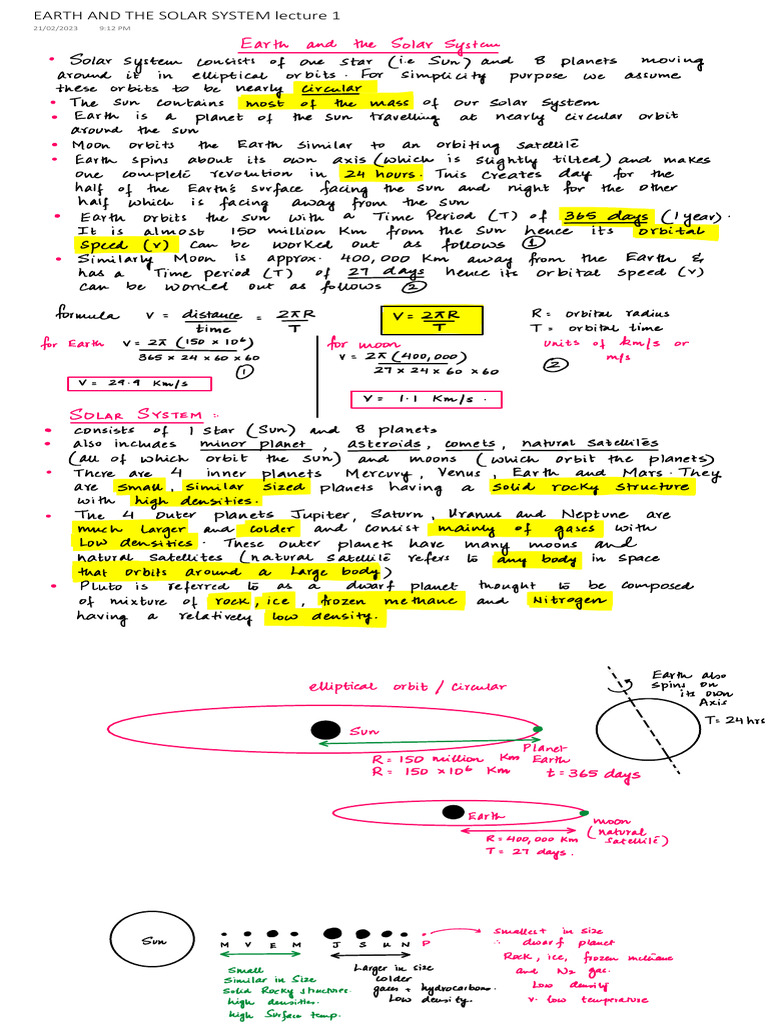 EARTH AND THE SOLAR SYSTEM lecture 1
21/02/2023 9:12 PM
Earth and the Solar System
• Solar System consists of one star (i.e Sun) and 8 planets moving
around it in elliptical orbits. For simplicity purpose we assume
these orbits to be nearly circular
• The Sun contains most of the mass of our Solar System
• Earth is a planet of the Sun travelling at nearly circular orbit
around the sun
• Moon orbits the Earth similar to an orbiting satellite
• Earth spins about its own axis (which is slightly tilted) and makes
one complete revolution in 24 hours. This creates day for the
half of the Earth's surface facing the sun and night for the other
half which is facing away from the sun
• Earth orbits the sun with a Time Period (T) of 365 days (1 year).
It is almost 150 million Km from the sun hence its orbital
speed (v) can be worked out as follows ①
• Similarly Moon is approx. 400,000 Km away from the Earth &
has a Time period (T) of 27 days hence its orbital speed (v)
can be worked out as follows ②
formula V = distance/time = 2πR/T
V = 2πR/T
R = orbital radius
T = orbital time
units of km/s or
m/s
for Earth V = 2π (150 × 10⁶) / 365 × 24 × 60 × 60
①
V = 29.9 Km/s
for moon
V = 2π (400,000) / 27 × 24 × 60 × 60
②
V = 1.1 Km/s.
SOLAR SYSTEM :-
• consists of 1 star (Sun) and 8 planets
• also includes minor planet, asteroids, comets, natural satellites
(all of which orbit the sun) and moons (which orbit the planets)
• There are 4 inner planets Mercury, Venus, Earth and Mars. They
are small, similar sized planets having a solid rocky structure
with high densities.
• The 4 outer planets Jupiter, Saturn, Uranus and Neptune are
much larger and colder and consist mainly of gases with
low densities. These outer planets have many moons and
natural satellites (natural satellite refers to any body in space
that orbits around a large body)
• Pluto is referred to as a dwarf planet thought to be composed
of mixture of rock, ice, frozen methane and Nitrogen
having a relatively low density.
elliptical orbit / circular
Sun
Planet
Earth
R = 150 million Km
R = 150 × 10⁶ Km
t = 365 days
Earth also
spins on
its own
Axis
T = 24 hrs
Earth
moon
(natural
satellite)
R = 400,000 Km
T = 27 days.
Sun
M V E M J S U N P
Small
Similar in Size
Solid Rocky structure.
high densities.
high Surface temp.
Larger in size
colder
gases + hydrocarbons.
Low density.
smallest in size
∴ dwarf planet
Rock, ice, frozen methane
and N₂ gas.
Low density
v. low temperature